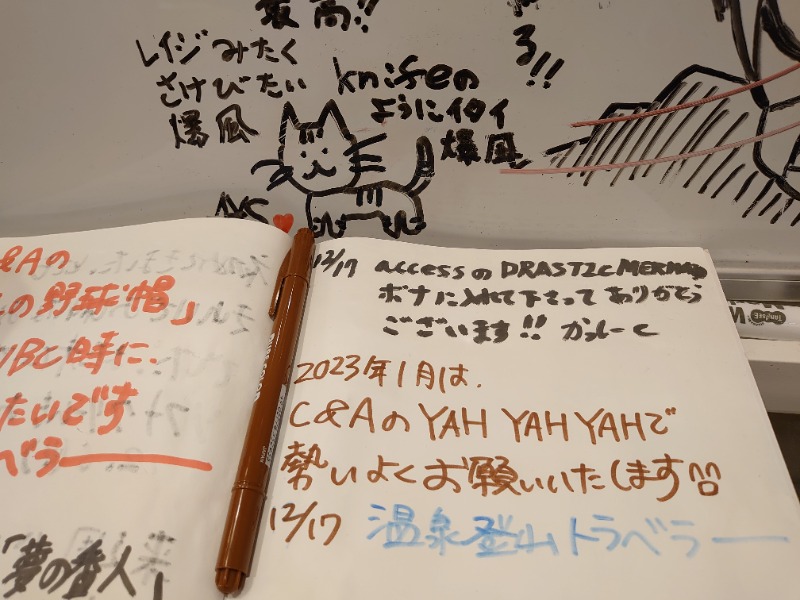 最高!!
る!!
レイジみたく
さけびたい
爆風
knifeの
ようにイタイ
爆風
&Aの
の野球帽」
WBC時に
たいです
ベラー
「夢の番人」
12/17 accessのDRASTIC MERMAID
ボナに入れて下さってありがとう
ございます!!
2023年1月は、
C&AのYAH YAH YAHで
勢いよくお願いいたします
12/17 温泉登山トラベラー